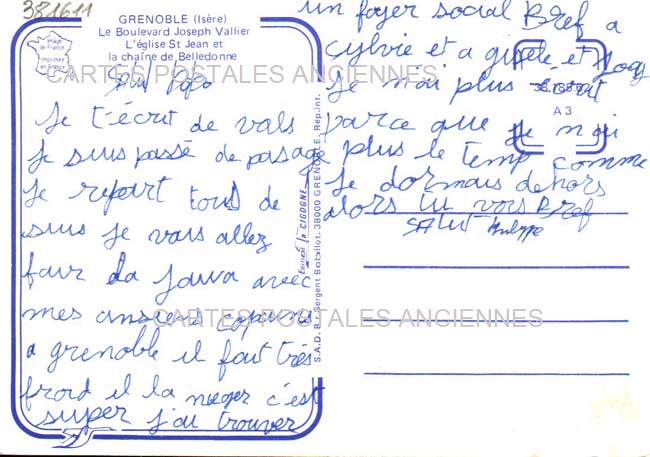 381611
GRENOBLE (Isère)
Le Boulevard Joseph Vallier
L'église St Jean et
la chaîne de Belledonne
Image
de France
imprimée
en France
CARTES POSTALES ANCIENNES
Salut Popo
Je t-écrit de vals
Je suis passé de pasage
Je repart tous de
suis je vais allez
fair la Java avec
mes ansiens copains
a grenoble il fait très
froid il la neger c'est
super j'ai trouver
un foyer social Bref a
Sylvie et a gisele et
Je n'ai plus écrit
parce que je n'ai
plus le temp comme
Je dormais dehors
alors tu vois Bref
SAlut Philippe
A 3
Editions la CIGOGNE
S.A.D. R. Sergent Bobillot. 38000 GRENOBLE. Rep. int.
CARTES POSTALES ANCIENNES